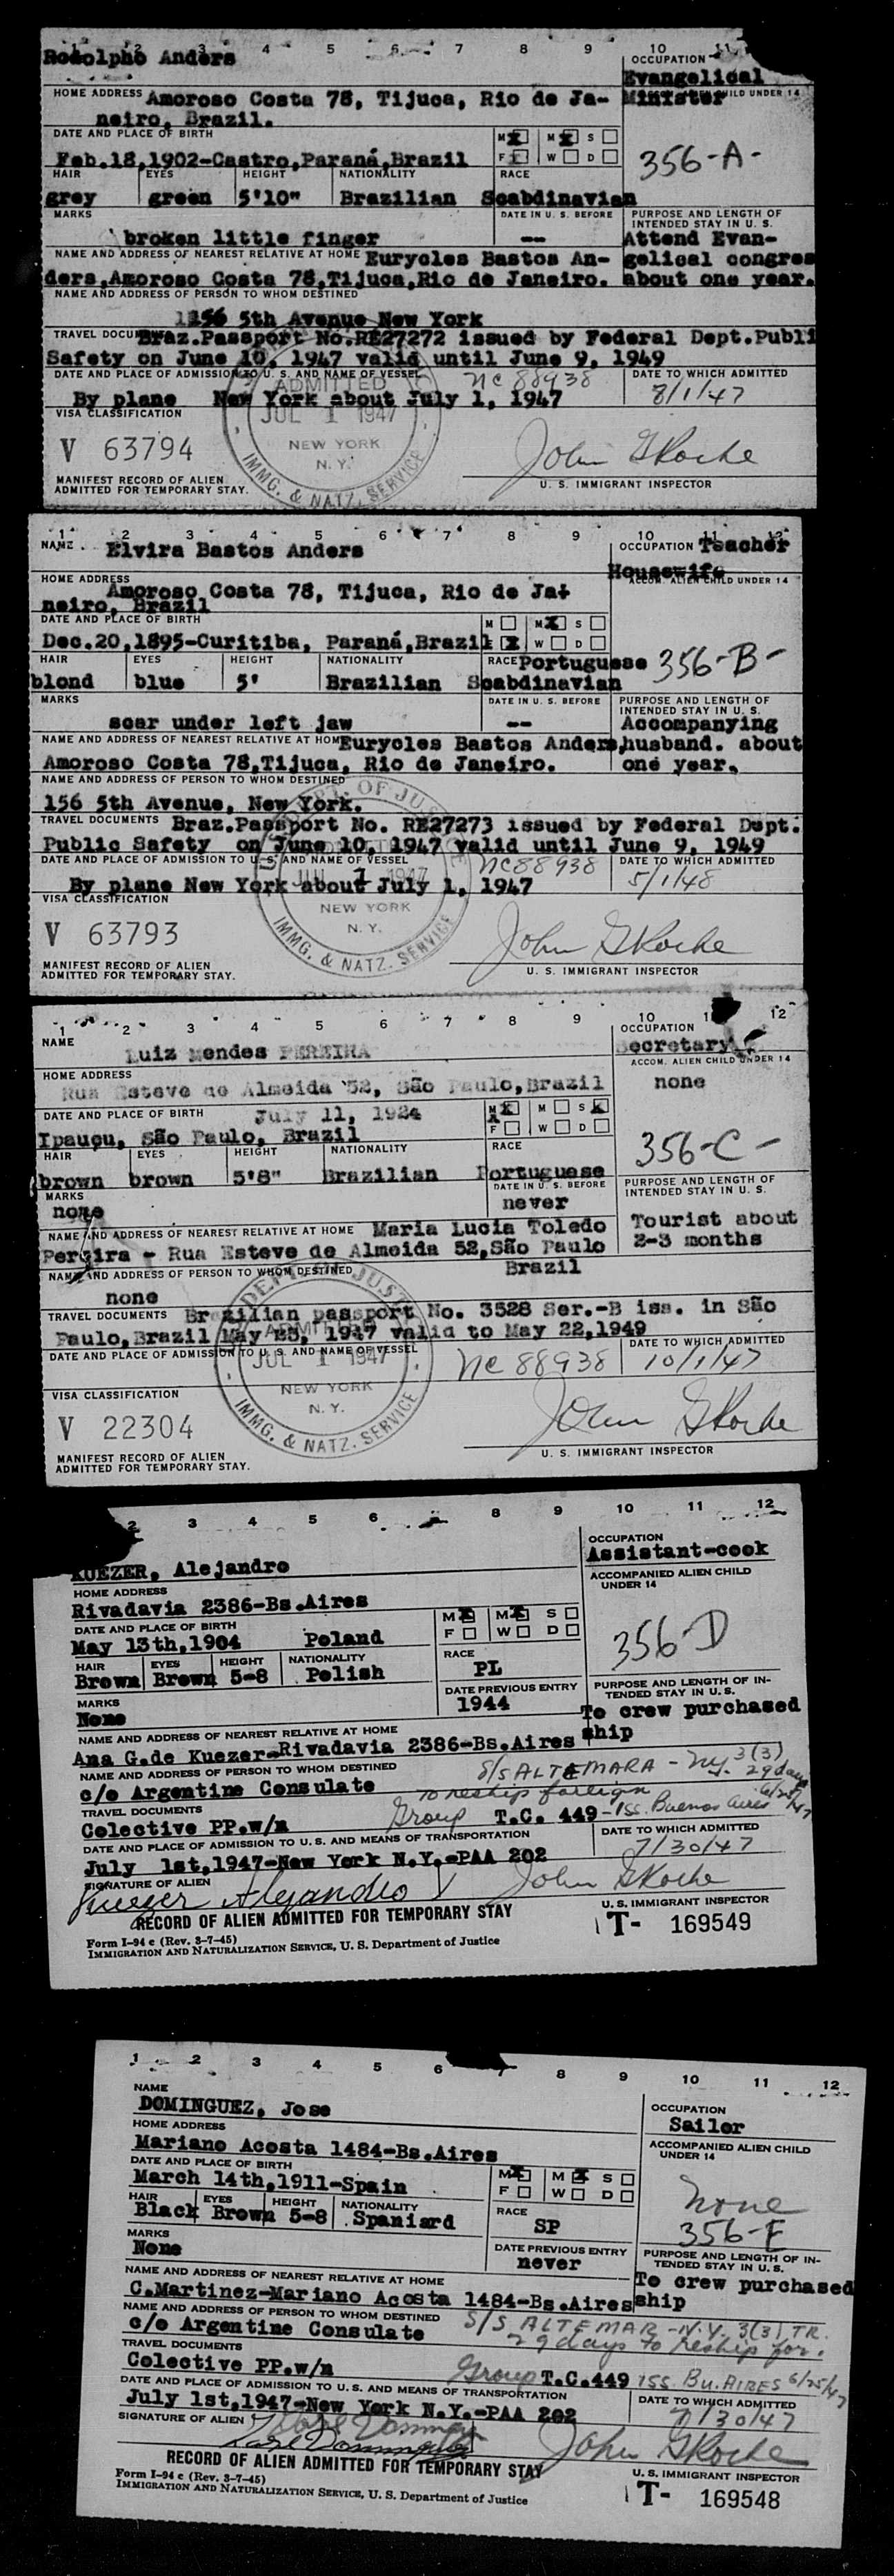 1 2 3 4 5 6 7 8 9 10 11
Rodolpho Anders
OCCUPATION
Evangelical
Minister
HOME ADDRESS Amoroso Costa 78, Tijuca, Rio de Ja-
neiro, Brazil.
CHILD UNDER 14
DATE AND PLACE OF BIRTH
M X M X S
Feb.18,1902-Castro,Paraná,Brazil
F W D
356-A-
HAIR EYES HEIGHT NATIONALITY RACE
grey green 5'10" Brazilian Scabdinavian
MARKS DATE IN U. S. BEFORE PURPOSE AND LENGTH OF
INTENDED STAY IN U. S.
broken little finger -- Attend Evan-
NAME AND ADDRESS OF NEAREST RELATIVE AT HOME Euryoles Bastos An- gelical congres
ders,Amoroso Costa 78,Tijuca,Rio de Janeiro. about one year.
NAME AND ADDRESS OF PERSON TO WHOM DESTINED
156 5th Avenue New York
TRAVEL DOCUMENTS Braz.Passport No.RE27272 issued by Federal Dept.Publi
Safety on June 10, 1947 valid until June 9, 1949
DATE AND PLACE OF ADMISSION TO U. S. AND NAME OF VESSEL NC 88938 DATE TO WHICH ADMITTED
By plane New York about July 1, 1947 8/1/47
ADMITTED
JUL 1 1947
NEW YORK
N. Y.
IMMG. & NATZ. SERVICE
VISA CLASSIFICATION
V 63794
John G Roche
MANIFEST RECORD OF ALIEN
ADMITTED FOR TEMPORARY STAY.
U. S. IMMIGRANT INSPECTOR
1 2 3 4 5 6 7 8 9 10 11 12
NAME Elvira Bastos Anders
OCCUPATION Teacher
Housewife
ACCOM. ALIEN CHILD UNDER 14
HOME ADDRESS
Amoroso Costa 78, Tijuca, Rio de Ja-
neiro, Brazil
DATE AND PLACE OF BIRTH
M M X S
Dec.20,1895-Curitiba, Paraná,Brazil X W D
HAIR EYES HEIGHT NATIONALITY RACE Portuguese 356-B-
blond blue 5' Brazilian Scabdinavian
MARKS DATE IN U. S. BEFORE PURPOSE AND LENGTH OF
INTENDED STAY IN U. S.
scar under left jaw -- Accompanying
NAME AND ADDRESS OF NEAREST RELATIVE AT HOME Euryoles Bastos Anders, husband. about
Amoroso Costa 78,Tijuca, Rio de Janeiro. one year.
NAME AND ADDRESS OF PERSON TO WHOM DESTINED
156 5th Avenue, New York.
TRAVEL DOCUMENTS Braz.Passport No. RE27273 issued by Federal Dept.
Public Safety on June 10, 1947 valid until June 9, 1949
DATE AND PLACE OF ADMISSION TO U. S. AND NAME OF VESSEL NC88938 DATE TO WHICH ADMITTED
By plane New York about July 1, 1947 5/1/48
DEPT. OF JUSTICE
JUL 1 1947
NEW YORK
N. Y.
IMMG. & NATZ. SERVICE
VISA CLASSIFICATION
V 63793
John G Roche
MANIFEST RECORD OF ALIEN
ADMITTED FOR TEMPORARY STAY.
U. S. IMMIGRANT INSPECTOR
1 2 3 4 5 6 7 8 9 10 1 12
NAME
Luiz Mendes PEREIRA
OCCUPATION
Secretary
ACCOM. ALIEN CHILD UNDER 14
none
HOME ADDRESS
Rua Esteve de Almeida 52, São Paulo,Brazil
DATE AND PLACE OF BIRTH July 11, 1924
M X M S X
X F W D
Ipauçu, São Paulo, Brazil
356-C-
HAIR EYES HEIGHT NATIONALITY RACE
brown brown 5'8" Brazilian Portuguese
MARKS DATE IN U. S. BEFORE PURPOSE AND LENGTH OF
INTENDED STAY IN U. S.
none never
NAME AND ADDRESS OF NEAREST RELATIVE AT HOME Maria Lucia Toledo Tourist about
Pereira - Rua Esteve de Almeida 52,São Paulo 2-3 months
Brazil
NAME AND ADDRESS OF PERSON TO WHOM DESTINED
none
TRAVEL DOCUMENTS Brazilian passport No. 3528 Ser.-B iss. in São
Paulo,Brazil May 23, 1947 valid to May 22,1949
DATE AND PLACE OF ADMISSION TO U. S. AND NAME OF VESSEL NC 88938 DATE TO WHICH ADMITTED
10/1/47
DEPT. JUSTICE
ADMITTED
JUL 1 1947
NEW YORK
N. Y.
IMMG. & NATZ. SERVICE
VISA CLASSIFICATION
V 22304
John G Roche
MANIFEST RECORD OF ALIEN
ADMITTED FOR TEMPORARY STAY.
U. S. IMMIGRANT INSPECTOR
2 3 4 5 6 8 9 10 11 12
KUEZER, Alejandro
OCCUPATION
Assistant-cook
ACCOMPANIED ALIEN CHILD
UNDER 14
HOME ADDRESS
Rivadavia 2386-Bs.Aires
DATE AND PLACE OF BIRTH
M X M X S
F W D
May 13th,1904 Poland
356-D
HAIR EYES HEIGHT NATIONALITY RACE
Brown Brown 5-8 Polish PL
MARKS DATE PREVIOUS ENTRY PURPOSE AND LENGTH OF IN-
TENDED STAY IN U. S.
None 1944 To crew purchased
ship
NAME AND ADDRESS OF NEAREST RELATIVE AT HOME
Ana G.de Kuezer-Rivadavia 2386-Bs.Aires
NAME AND ADDRESS OF PERSON TO WHOM DESTINED S/S ALTEMARA - N.Y. 3(3)
29 days
c/o Argentine Consulate to reship foreign
TRAVEL DOCUMENTS
Colective PP.w/n Group T.C. 449 - iss. Buenos Aires 6/25/47
DATE AND PLACE OF ADMISSION TO U. S. AND MEANS OF TRANSPORTATION DATE TO WHICH ADMITTED
July 1st,1947-New York N.Y.-PAA 202 7/30/47
SIGNATURE OF ALIEN
Kuezer Alejandro
John G Roche
U. S. IMMIGRANT INSPECTOR
RECORD OF ALIEN ADMITTED FOR TEMPORARY STAY
T- 169549
Form I-94 c (Rev. 3-7-45)
IMMIGRATION AND NATURALIZATION SERVICE, U. S. Department of Justice
1 2 3 4 5 6 7 8 9 10 11 12
NAME
DOMINGUEZ, Jose
OCCUPATION
Sailor
ACCOMPANIED ALIEN CHILD
UNDER 14
HOME ADDRESS
Mariano Acosta 1484-Bs.Aires
DATE AND PLACE OF BIRTH
M X M X S
F W D
March 14th,1911-Spain
none
356-E
HAIR EYES HEIGHT NATIONALITY RACE
Black Brown 5-8 Spaniard SP
MARKS DATE PREVIOUS ENTRY PURPOSE AND LENGTH OF IN-
TENDED STAY IN U. S.
None never To crew purchased
ship
NAME AND ADDRESS OF NEAREST RELATIVE AT HOME
C.Martinez-Mariano Acosta 1484-Bs.Aires
NAME AND ADDRESS OF PERSON TO WHOM DESTINED S/S ALTEMAR - N.Y. 3(3) TR.
c/o Argentine Consulate 29 days to reship for.
TRAVEL DOCUMENTS
Colective PP.w/n Group T.C.449 iss. Bu. AIRES 6/25/47
DATE AND PLACE OF ADMISSION TO U. S. AND MEANS OF TRANSPORTATION DATE TO WHICH ADMITTED
July 1st,1947-New York N.Y.-PAA 202 7/30/47
SIGNATURE OF ALIEN
John G Roche
U. S. IMMIGRANT INSPECTOR
RECORD OF ALIEN ADMITTED FOR TEMPORARY STAY
T- 169548
Form I-94 c (Rev. 3-7-45)
IMMIGRATION AND NATURALIZATION SERVICE, U. S. Department of Justice